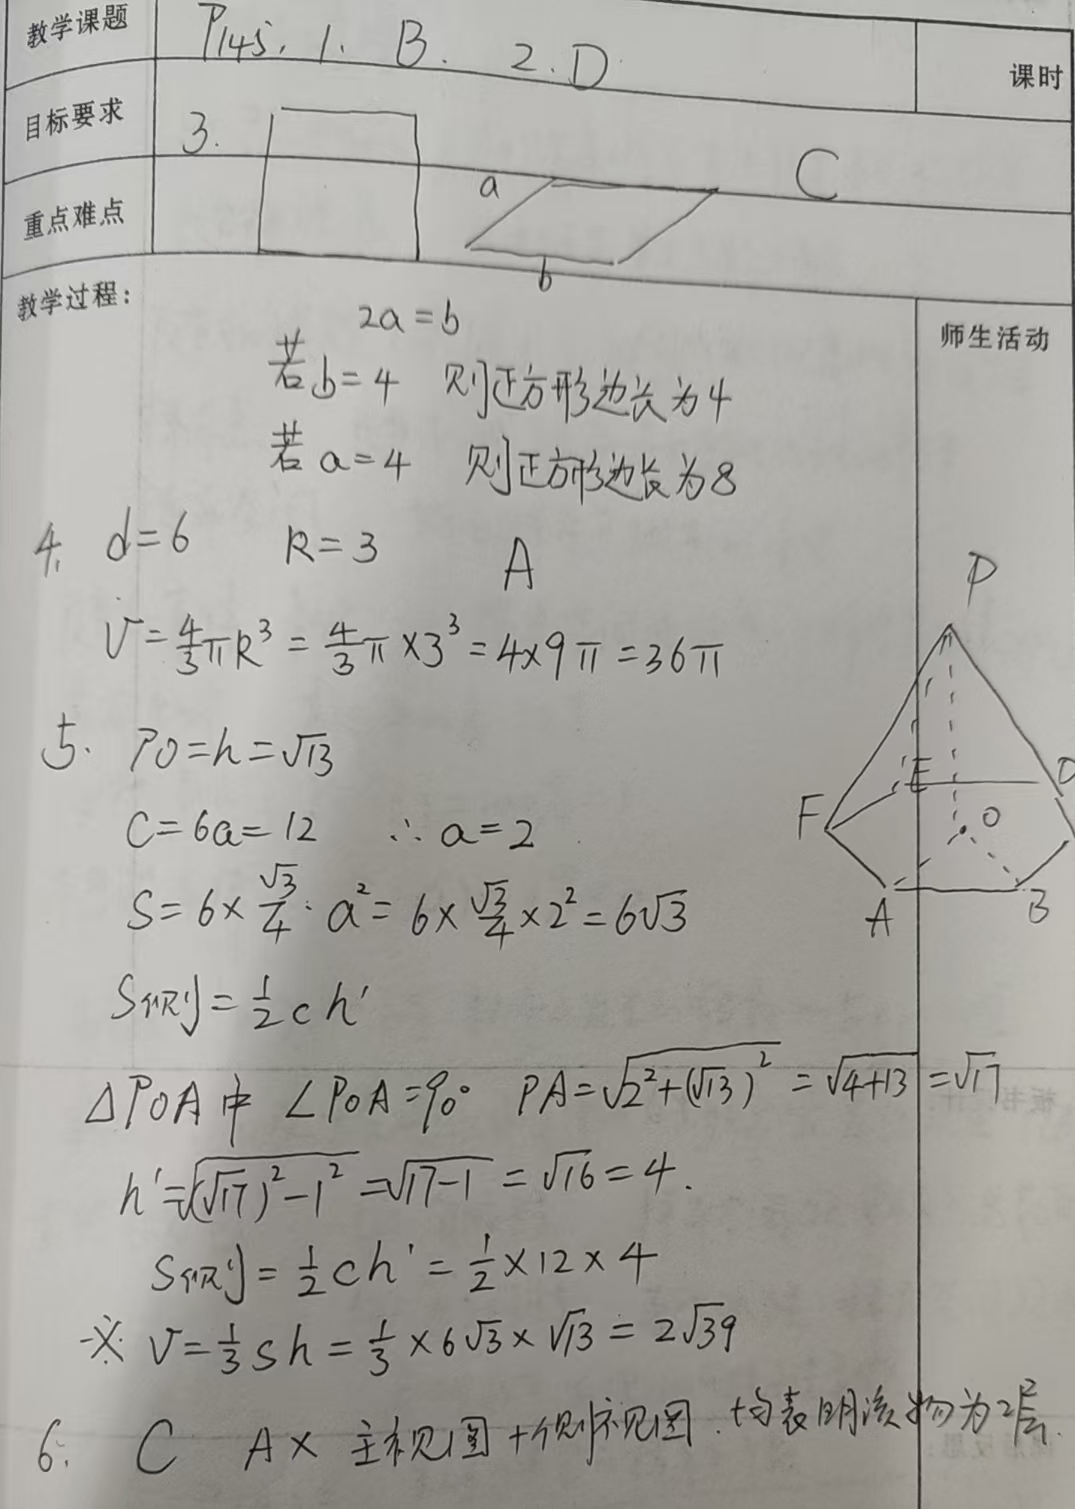 教学课题 P145. 1. B. 2. D 课时
目标要求
3. C
重点难点
a
b
教学过程:
师生活动
2a=b
若b=4 则正方形边长为4
若a=4 则正方形边长为8
4. d=6 R=3 A
V=4/3πR³=4/3π×3³=4×9π=36π
P
F E D O A B
5. PO=h=√13
C=6a=12 ∴a=2
S=6×√3/4·a²=6×√3/4×2²=6√3
S侧=1/2ch'
△POA中 ∠POA=90° PA=√(2²+(√13)²)=√(4+13)=√17
h'=√((√17)²-1²)=√(17-1)=√16=4.
S侧=1/2ch'=1/2×12×4
※ V=1/3Sh=1/3×6√3×√13=2√39
6. C A× 主视图+侧视图.均表明该物为2层.